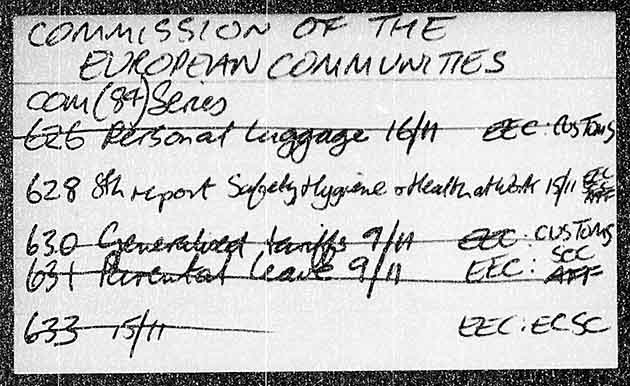 COMMISSION OF THE
EUROPEAN COMMUNITIES
COM(84) Series
626 Personal Luggage 16/11 EEC: CUSTOMS
628 8th report Safety Hygiene & Health at Work 15/11 EEC SOC AFF
630 Generalised tariffs 9/11 EEC: CUSTOMS
631 Parental Leave 9/11 EEC: SOC AFF
633 15/11 EEC: ECSC